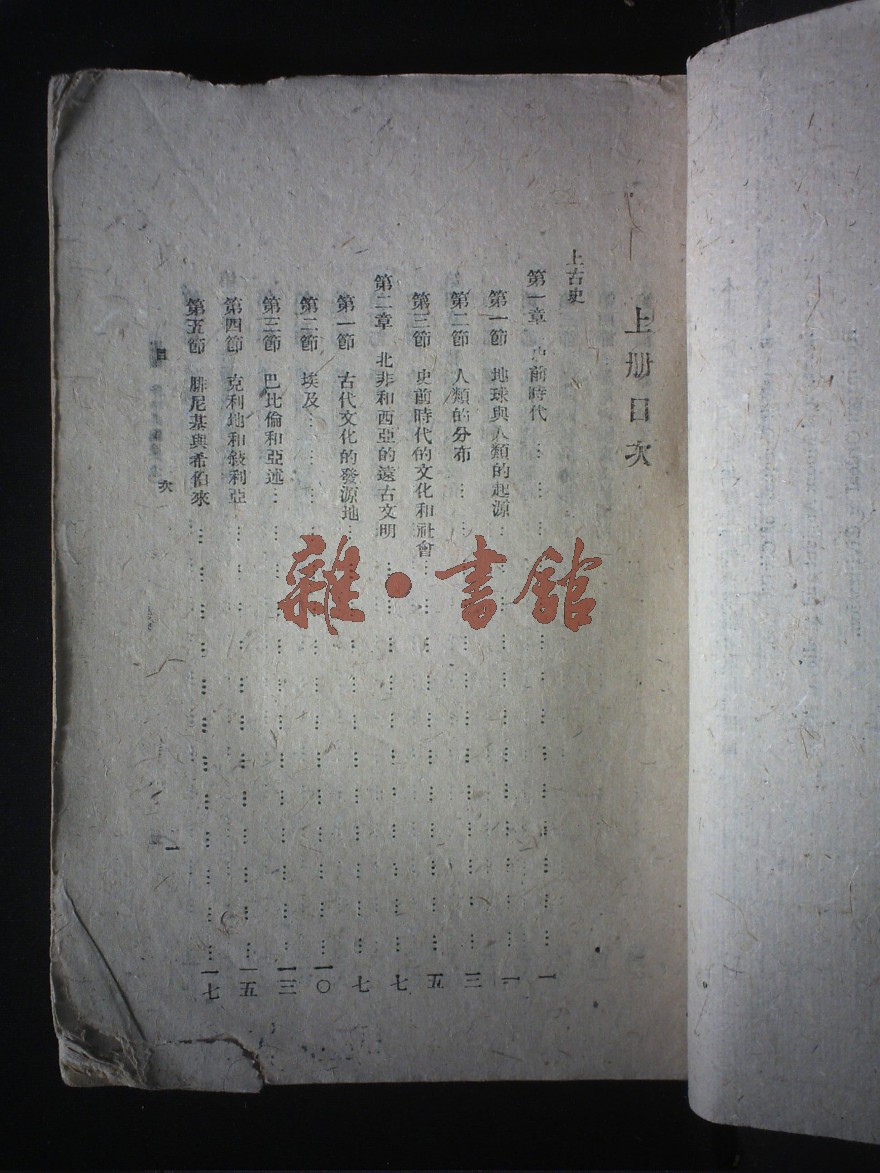 上册目次
上古史
第一章 史前時代 … … … 一
第一節 地球與人類的起源 … … … 一
第二節 人類的分布 … … … 三
第三節 史前時代的文化和社會 … … … 五
第二章 北非和西亞的遠古文明 … … … 七
第一節 古代文化的發源地 … … … 七
第二節 埃及 … … … 一〇
第三節 巴比倫和亞述 … … … 一三
第四節 克利地和敍利亞 … … … 一五
第五節 腓尼基與希伯來 … … … 一七
目次 一
雜·書館